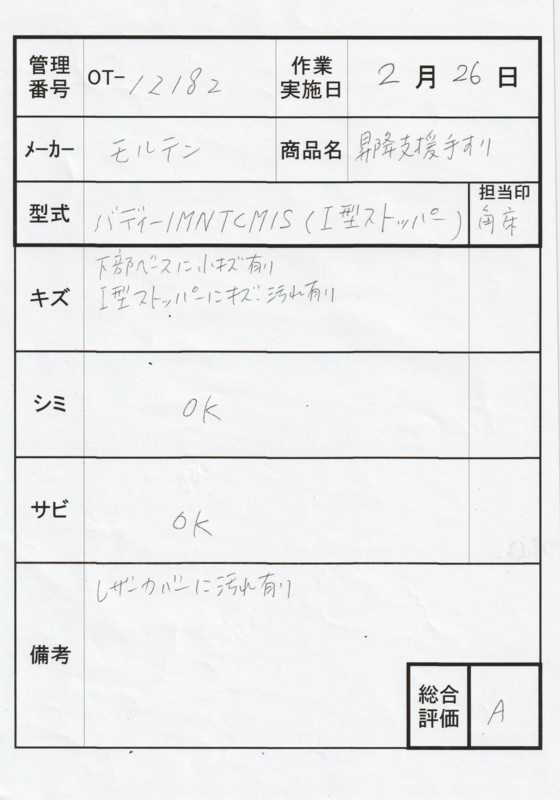 管理番号 OT-12182 作業実施日 2月26日
メーカー モルテン 商品名 昇降支援手すり
型式 バディーIMNTCMIS(I型ストッパー) 担当印
キズ 下部ベースに小キズ有り
I型ストッパーにキズ、汚れ有り
シミ OK
サビ OK
備考 レザーカバーに汚れ有り
総合評価 A